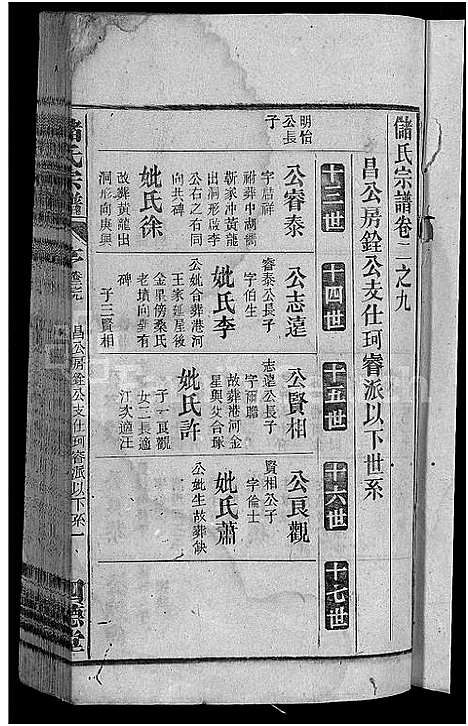 儲氏宗譜卷二之九
昌公房銓公支仕珂睿派以下世系
十三世
十四世
十五世
十六世
十七世
明怡
公長
子
公睿泰
字啟祥
祔葬中湖衝
靳家冲黃龍
出洞形戌李
公石之右同
向共碑
妣氏徐
故葬黃龍出
洞形向庚與
公志遠
睿泰公長子
字伯生
公妣合葬港河
王家
星後
金星傍桑氏
老墳向
有
碑
妣氏李
子三賢相
公賢相
志遠公長子
字爾聯
故葬港河金
星與父合塚
妣氏許
子一良觀
女二長適
汪次適汪
公良觀
賢相公子
字倫士
公妣生故葬缺
妣氏蕭
儲氏宗譜
卷二之九
昌公房銓公支仕珂睿派以下系一
德堂